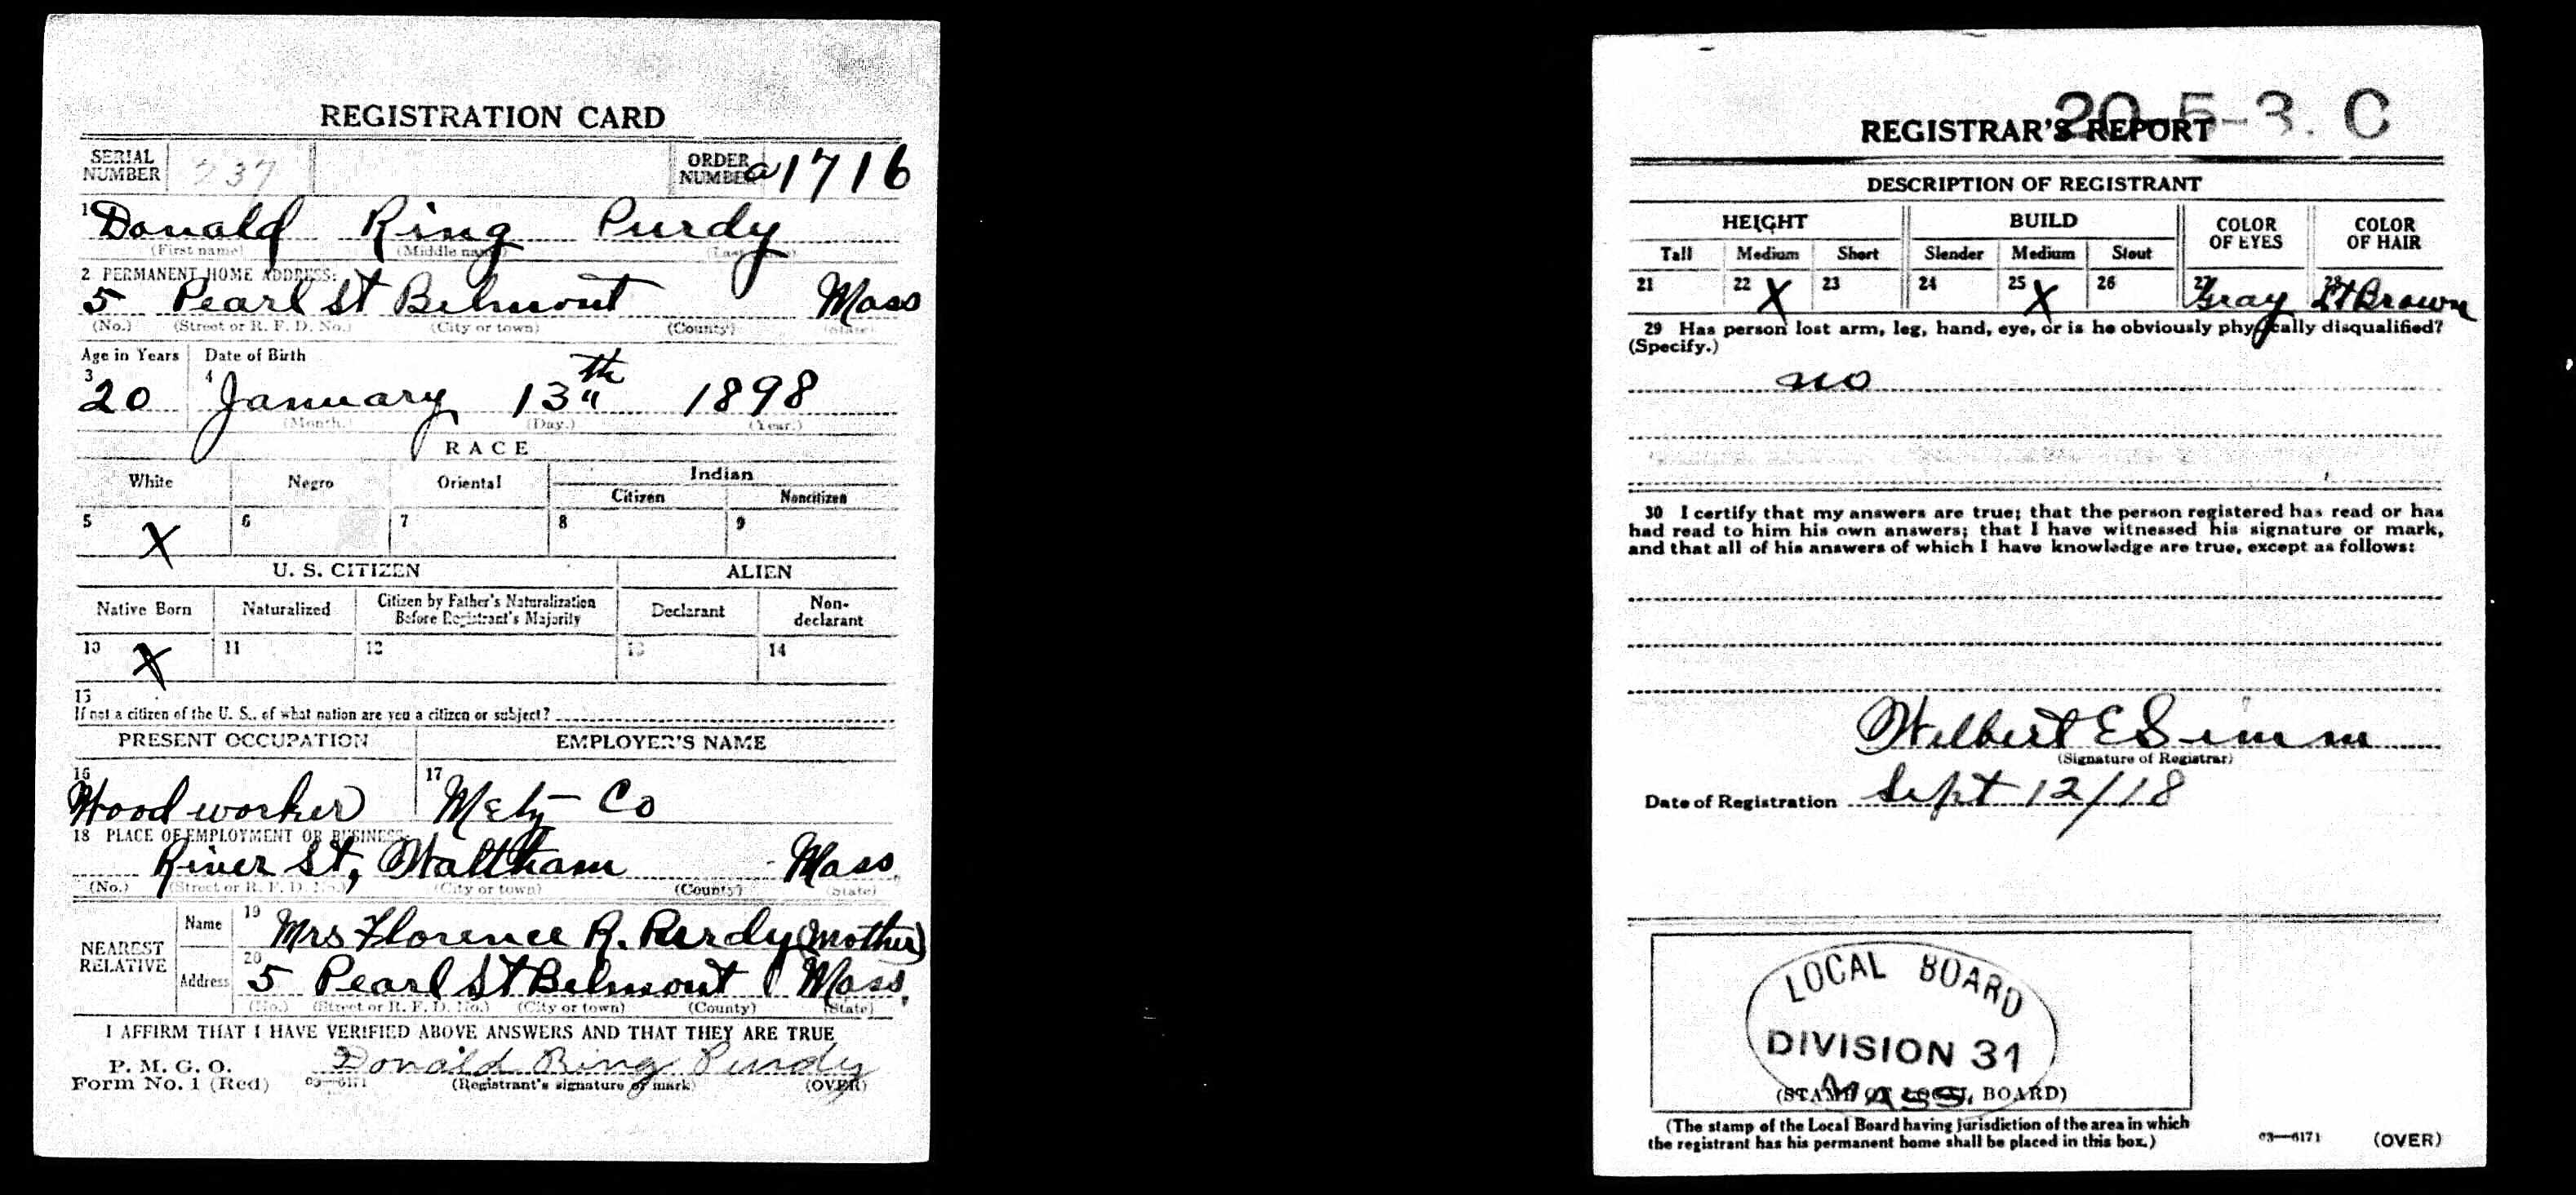 REGISTRATION CARD
SERIAL NUMBER 237 ORDER NUMBER a1716
1 Donald Ring Purdy
(First name) (Middle name) (Last name)
2 PERMANENT HOME ADDRESS:
5 Pearl St Belmont Mass
(No.) (Street or R. F. D. No.) (City or town) (County) (State)
Age in Years Date of Birth
3 20 4 January 13th 1898
(Month.) (Day.) (Year.)
RACE
White Negro Oriental Indian
Citizen Noncitizen
5 X 6 7 8 9
U. S. CITIZEN ALIEN
Native Born Naturalized Citizen by Father's Naturalization Before Registrant's Majority Declarant Non-declarant
10 X 11 12 13 14
15
If not a citizen of the U. S., of what nation are you a citizen or subject?
PRESENT OCCUPATION EMPLOYER'S NAME
16 Wood worker 17 Metz Co
18 PLACE OF EMPLOYMENT OR BUSINESS:
River St, Waltham Mass
(No.) (Street or R. F. D. No.) (City or town) (County) (State)
NEAREST RELATIVE Name 19 Mrs Florence R. Purdy (Mother)
Address 20 5 Pearl St Belmont Mass.
(No.) (Street or R. F. D. No.) (City or town) (County) (State)
I AFFIRM THAT I HAVE VERIFIED ABOVE ANSWERS AND THAT THEY ARE TRUE
P. M. G. O.
Form No. 1 (Red) 03—6171 Donald Ring Purdy
(Registrant's signature or mark) (OVER)
20-5-3. C
REGISTRAR'S REPORT
DESCRIPTION OF REGISTRANT
HEIGHT BUILD COLOR OF EYES COLOR OF HAIR
Tall Medium Short Slender Medium Stout
21 22 X 23 24 25 X 26 27 Gray 28 Lt Brown
29 Has person lost arm, leg, hand, eye, or is he obviously physically disqualified?
(Specify.)
no
30 I certify that my answers are true; that the person registered has read or has
had read to him his own answers; that I have witnessed his signature or mark,
and that all of his answers of which I have knowledge are true, except as follows:
Wilbert E Simm
(Signature of Registrar)
Date of Registration Sept 12/18
LOCAL BOARD
DIVISION 31
MASS.
(STAMP OF LOCAL BOARD)
(The stamp of the Local Board having jurisdiction of the area in which
the registrant has his permanent home shall be placed in this box.)
03—6171 (OVER)